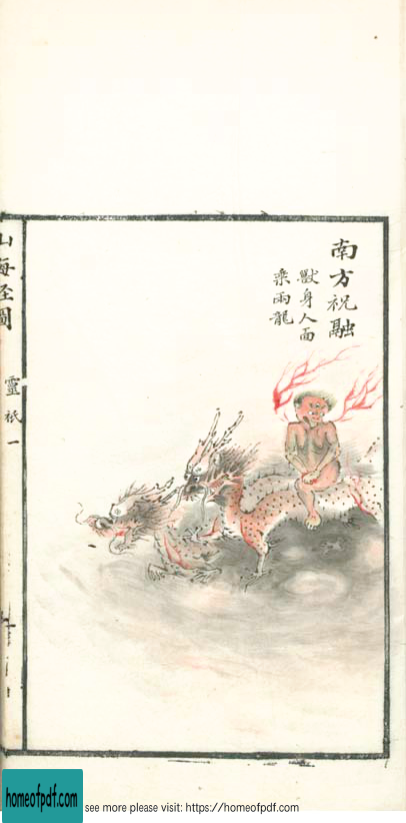 南方祝融
獸身人面
乘兩龍
山海经圖
靈祇一
homeofpdf.com
see more please visit: https://homeofpdf.com